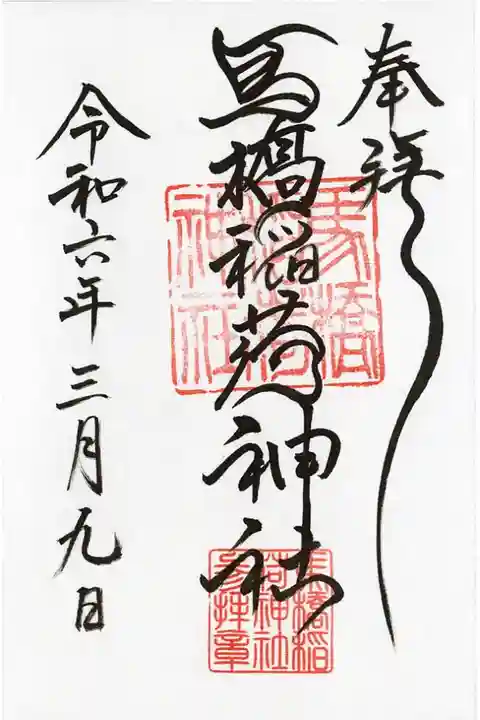 奉拝
馬橋稲荷神社
馬橋稲荷神社
馬橋稲荷神社参拝章
令和六年三月九日